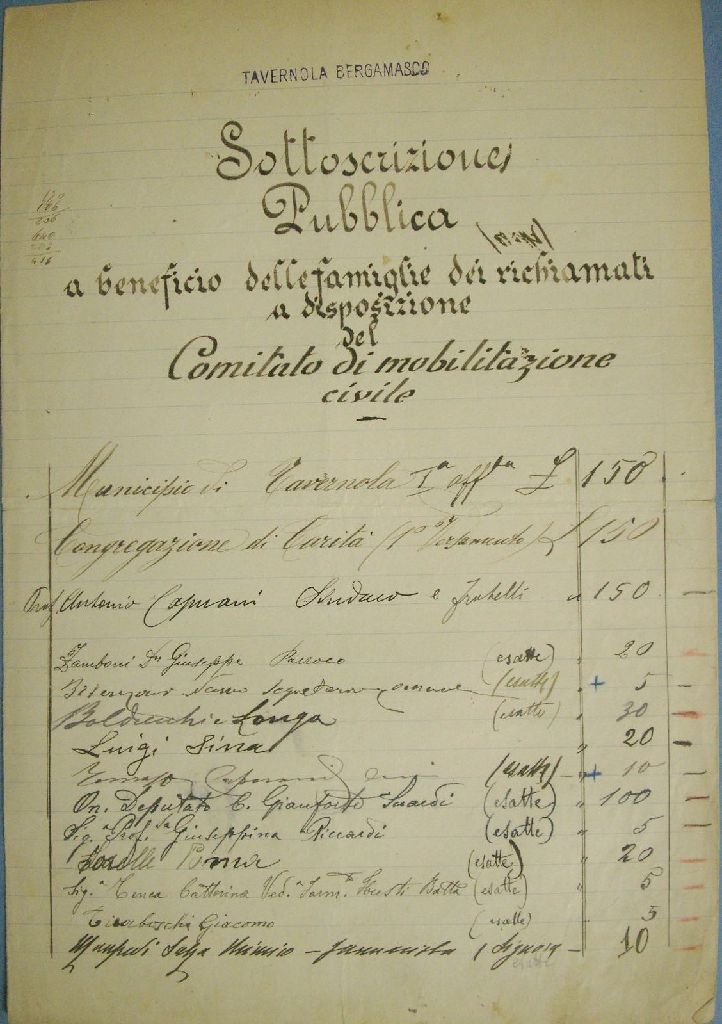 TAVERNOLA BERGAMASCO
Sottoscrizione
Pubblica
a beneficio delle famiglie dei richiamati
a disposizione
del
Comitato di mobilitazione
civile
Municipio di Tavernola Iª off.ta £ 150
Congregazione di Carità (1º Versamento) £ 150
Prof. Antonio Capuani Sindaco e fratelli " 150
Zamboni Dn Giuseppe Parroco (esatte) " 20
(esatte) " + 5
Boldrecchi e Longa (esatte) " 30
Luigi Sina " 20
Tomaso Capuani (esatte) + 10
On. Deputato C. Gianforte Suardi (esatte) " 100
Sig.a Prof.sa Giuseppina Riccardi (esatte) " 5
Sorelle (esatte) " 20
Sig.a Catterina Ved.a (esatte) " 5
Tiraboschi Giacomo (esatte) " 5
10